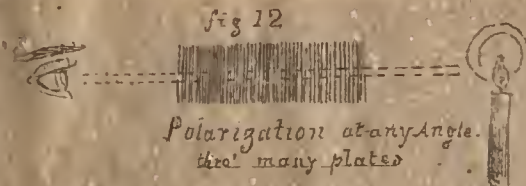 fig 12
Polarization at any Angle.
thro' many plates